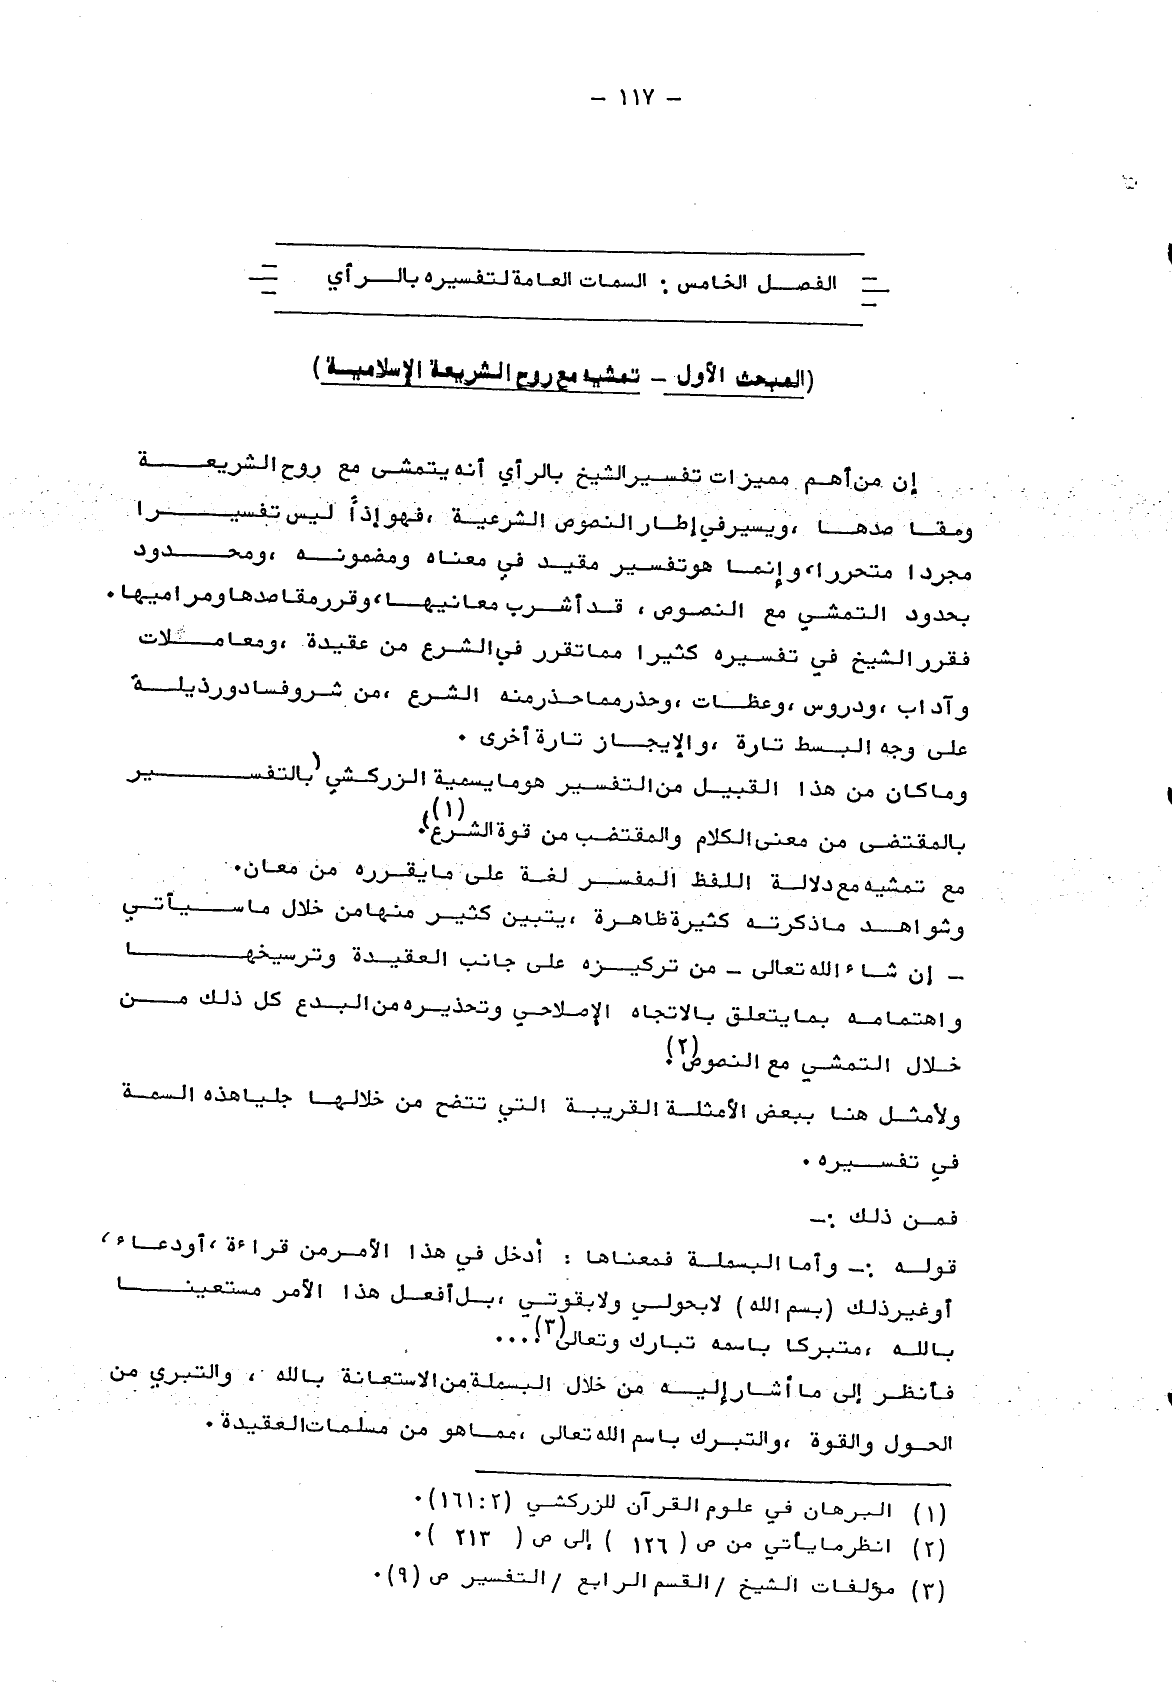 - ١١٧ -
الفصل الخامس : السمات العامة لتفسيره بالرأي
(المبحث الأول - تمشيه مع روح الشريعة الإسلامية)
إن من أهم مميزات تفسير الشيخ بالرأي أنه يتمشى مع روح الشريعة
ومقاصدها ، ويسير في إطار النصوص الشرعية ، فهو إذاً ليس تفسيرا
مجردا متحررا، وإنما هو تفسير مقيد في معناه ومضمونه ، ومحدود
بحدود التمشي مع النصوص ، قد أشرب معانيها ، وقرر مقاصدها ومراميها .
فقرر الشيخ في تفسيره كثيرا مما تقرر في الشرع من عقيدة ، ومعاملات
وآداب ، ودروس ، وعظات ، وحذر مما حذر منه الشرع ، من شر وفساد ورذيلة
على وجه البسط تارة ، والإيجاز تارة أخرى .
وما كان من هذا القبيل من التفسير هو ما يسمية الزركشي (بالتفسير
بالمقتضى من معنى الكلام والمقتضب من قوة الشرع)(١).
مع تمشيه مع دلالة اللفظ المفسر لغة على ما يقرره من معان.
وشواهد ما ذكرته كثيرة ظاهرة ، يتبين كثير منها من خلال ما سيأتي
- إن شاء الله تعالى - من تركيزه على جانب العقيدة وترسيخها
واهتمامه بما يتعلق بالاتجاه الإصلاحي وتحذيره من البدع كل ذلك من
خلال التمشي مع النصوص(٢).
ولأمثل هنا ببعض الأمثلة القريبة التي تتضح من خلالها جليا هذه السمة
في تفسيره .
فمن ذلك :-
قوله :- وأما البسملة فمعناها : أدخل في هذا الأمر من قراءة ، أو دعاء ،
أو غير ذلك (بسم الله) لا بحولي ولا بقوتي ، بل أفعل هذا الأمر مستعينا
بالله ، متبركا باسمه تبارك وتعالى(٣)....
فانظر إلى ما أشار إليه من خلال البسملة من الاستعانة بالله ، والتبري من
الحول والقوة ، والتبرك باسم الله تعالى ، مما هو من مسلمات العقيدة .
(١) البرهان في علوم القرآن للزركشي (٢:١٦١).
(٢) انظر ما يأتي من ص ( ١٢٦ ) إلى ص ( ٢١٣ ).
(٣) مؤلفات الشيخ / القسم الرابع / التفسير ص (٩).